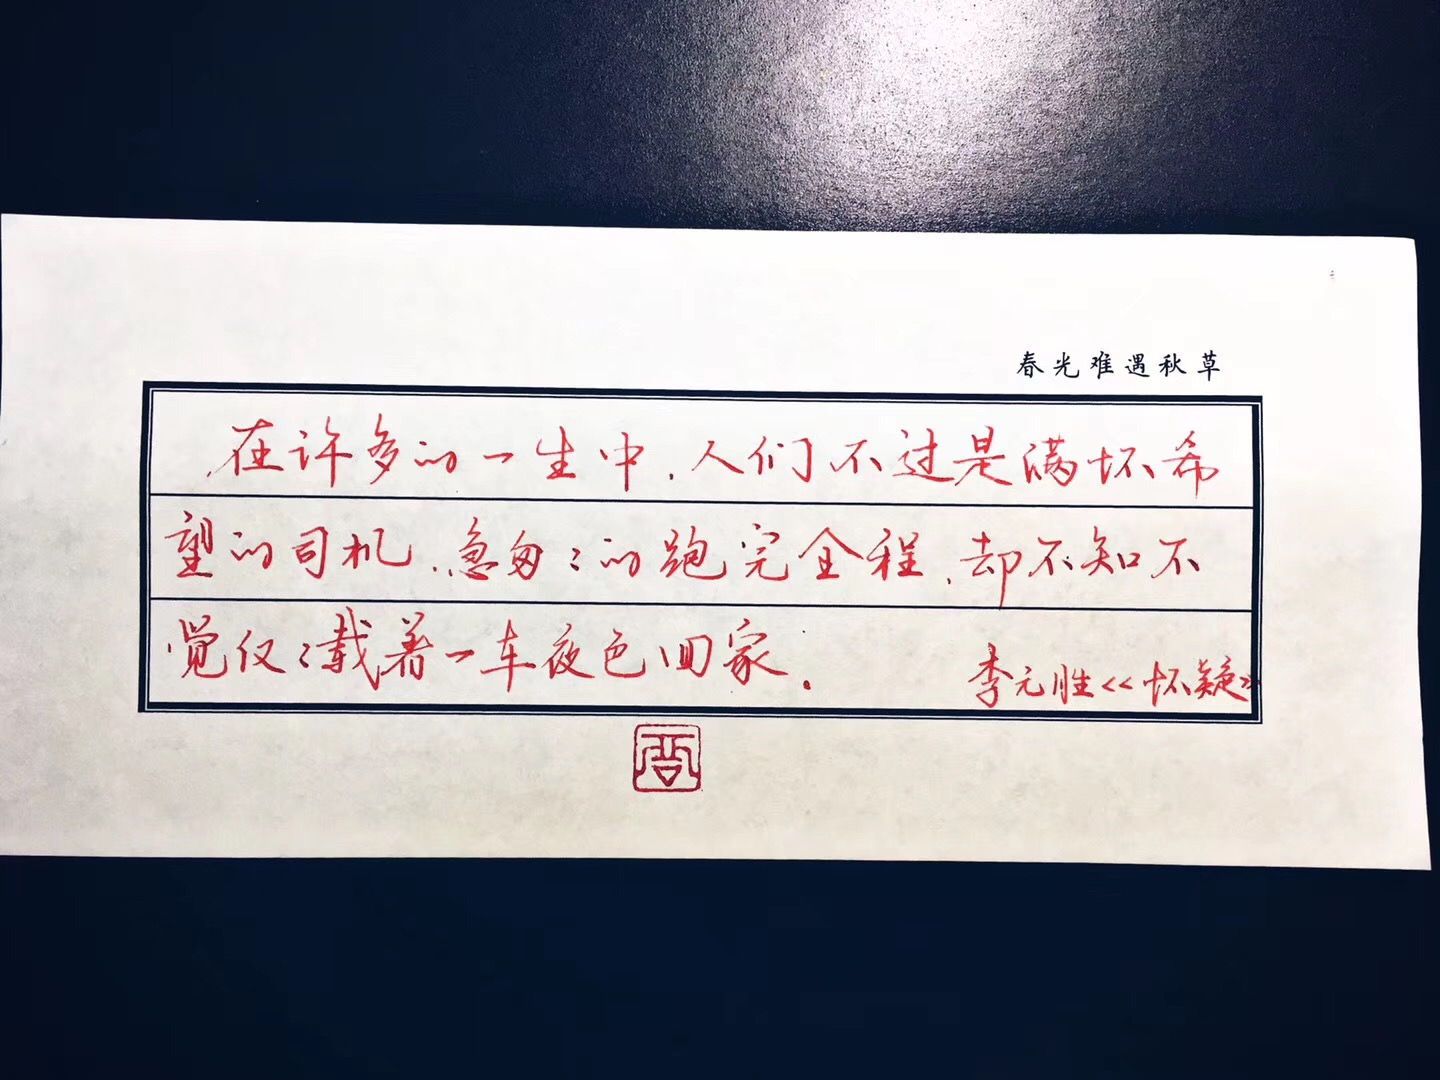 春光难遇秋草
在许多的一生中，人们不过是满怀希
望的司机，忽匆々的跑完全程，却不知不
觉仅々载着一车夜色回家。
李元胜《怀疑》